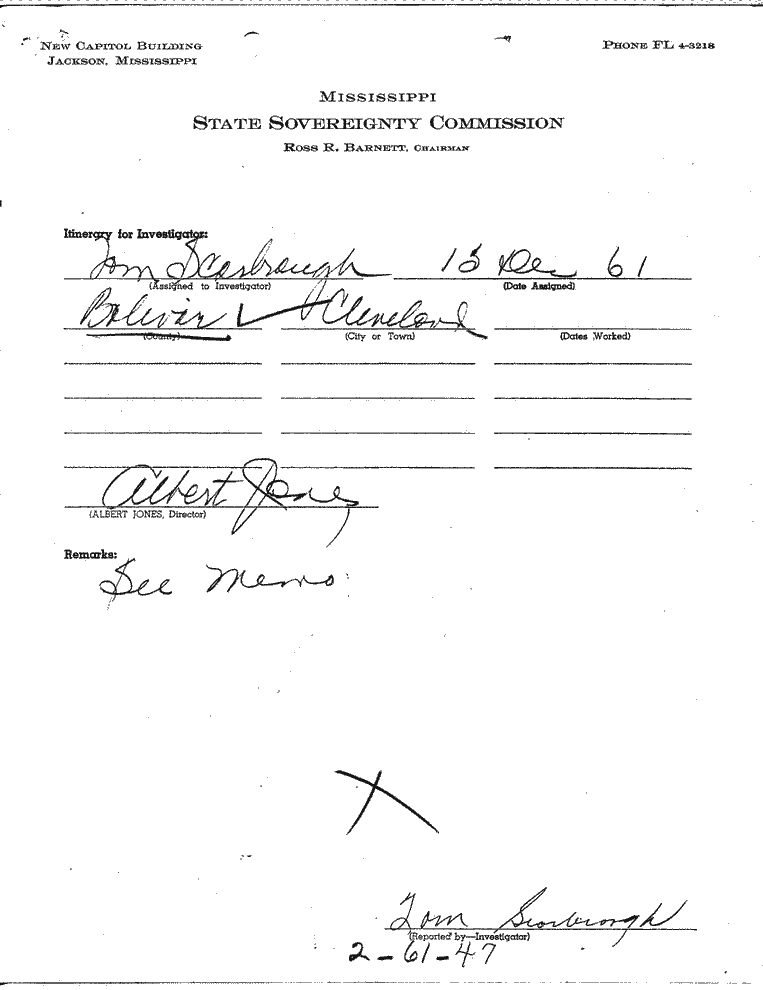 NEW CAPITOL BUILDING
JACKSON, MISSISSIPPI
PHONE FL 4-3218
MISSISSIPPI
STATE SOVEREIGNTY COMMISSION
ROSS R. BARNETT, CHAIRMAN
Itinerary for Investigator:
Tom Scarbrough 13 Dec 61
(Assigned to Investigator) (Date Assigned)
Bolivar Cleveland
(County) (City or Town) (Dates Worked)
Albert Jones
(ALBERT JONES, Director)
Remarks:
See Memo
Tom Scarbrough
(Reported by—Investigator)
2-61-47